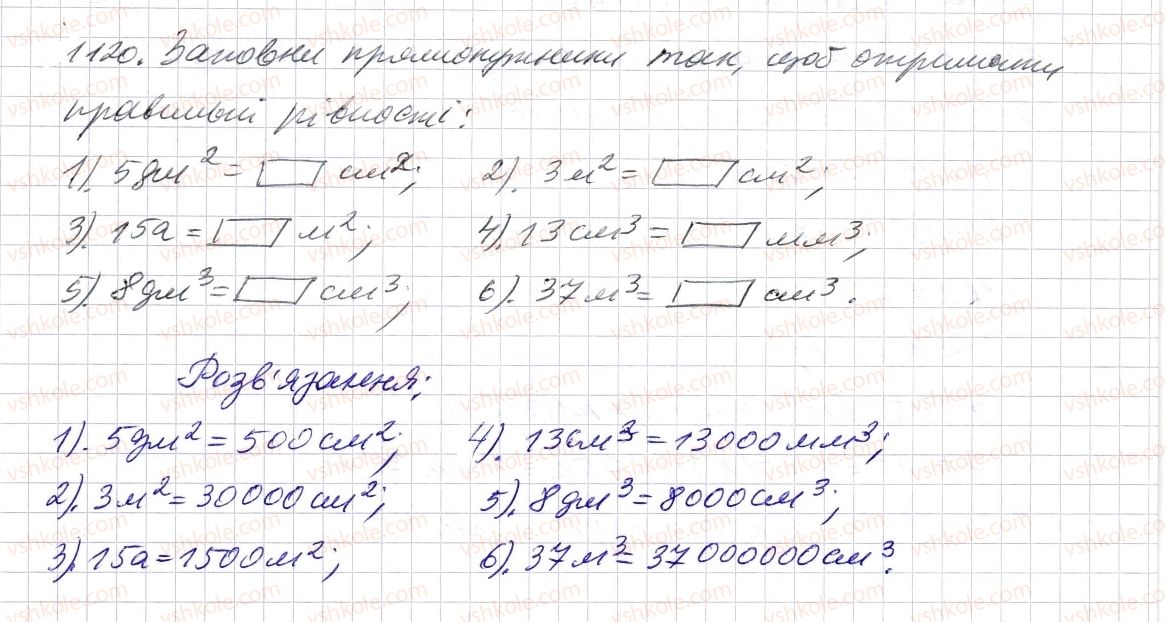 1120. Заповни прямокутники так, щоб отримати
правильні рівності:
1). 5дм² = ▭ см²; 2). 3м² = ▭ см²;
3). 15а = ▭ м²; 4). 13см³ = ▭ мм³;
5). 8дм³ = ▭ см³; 6). 37м³ = ▭ см³.
Розв'язання:
1). 5дм² = 500см²; 4). 13см³ = 13000мм³;
2). 3м² = 30000см²; 5). 8дм³ = 8000см³;
3). 15а = 1500м²; 6). 37м³ = 37000000см³.
vshkole.com